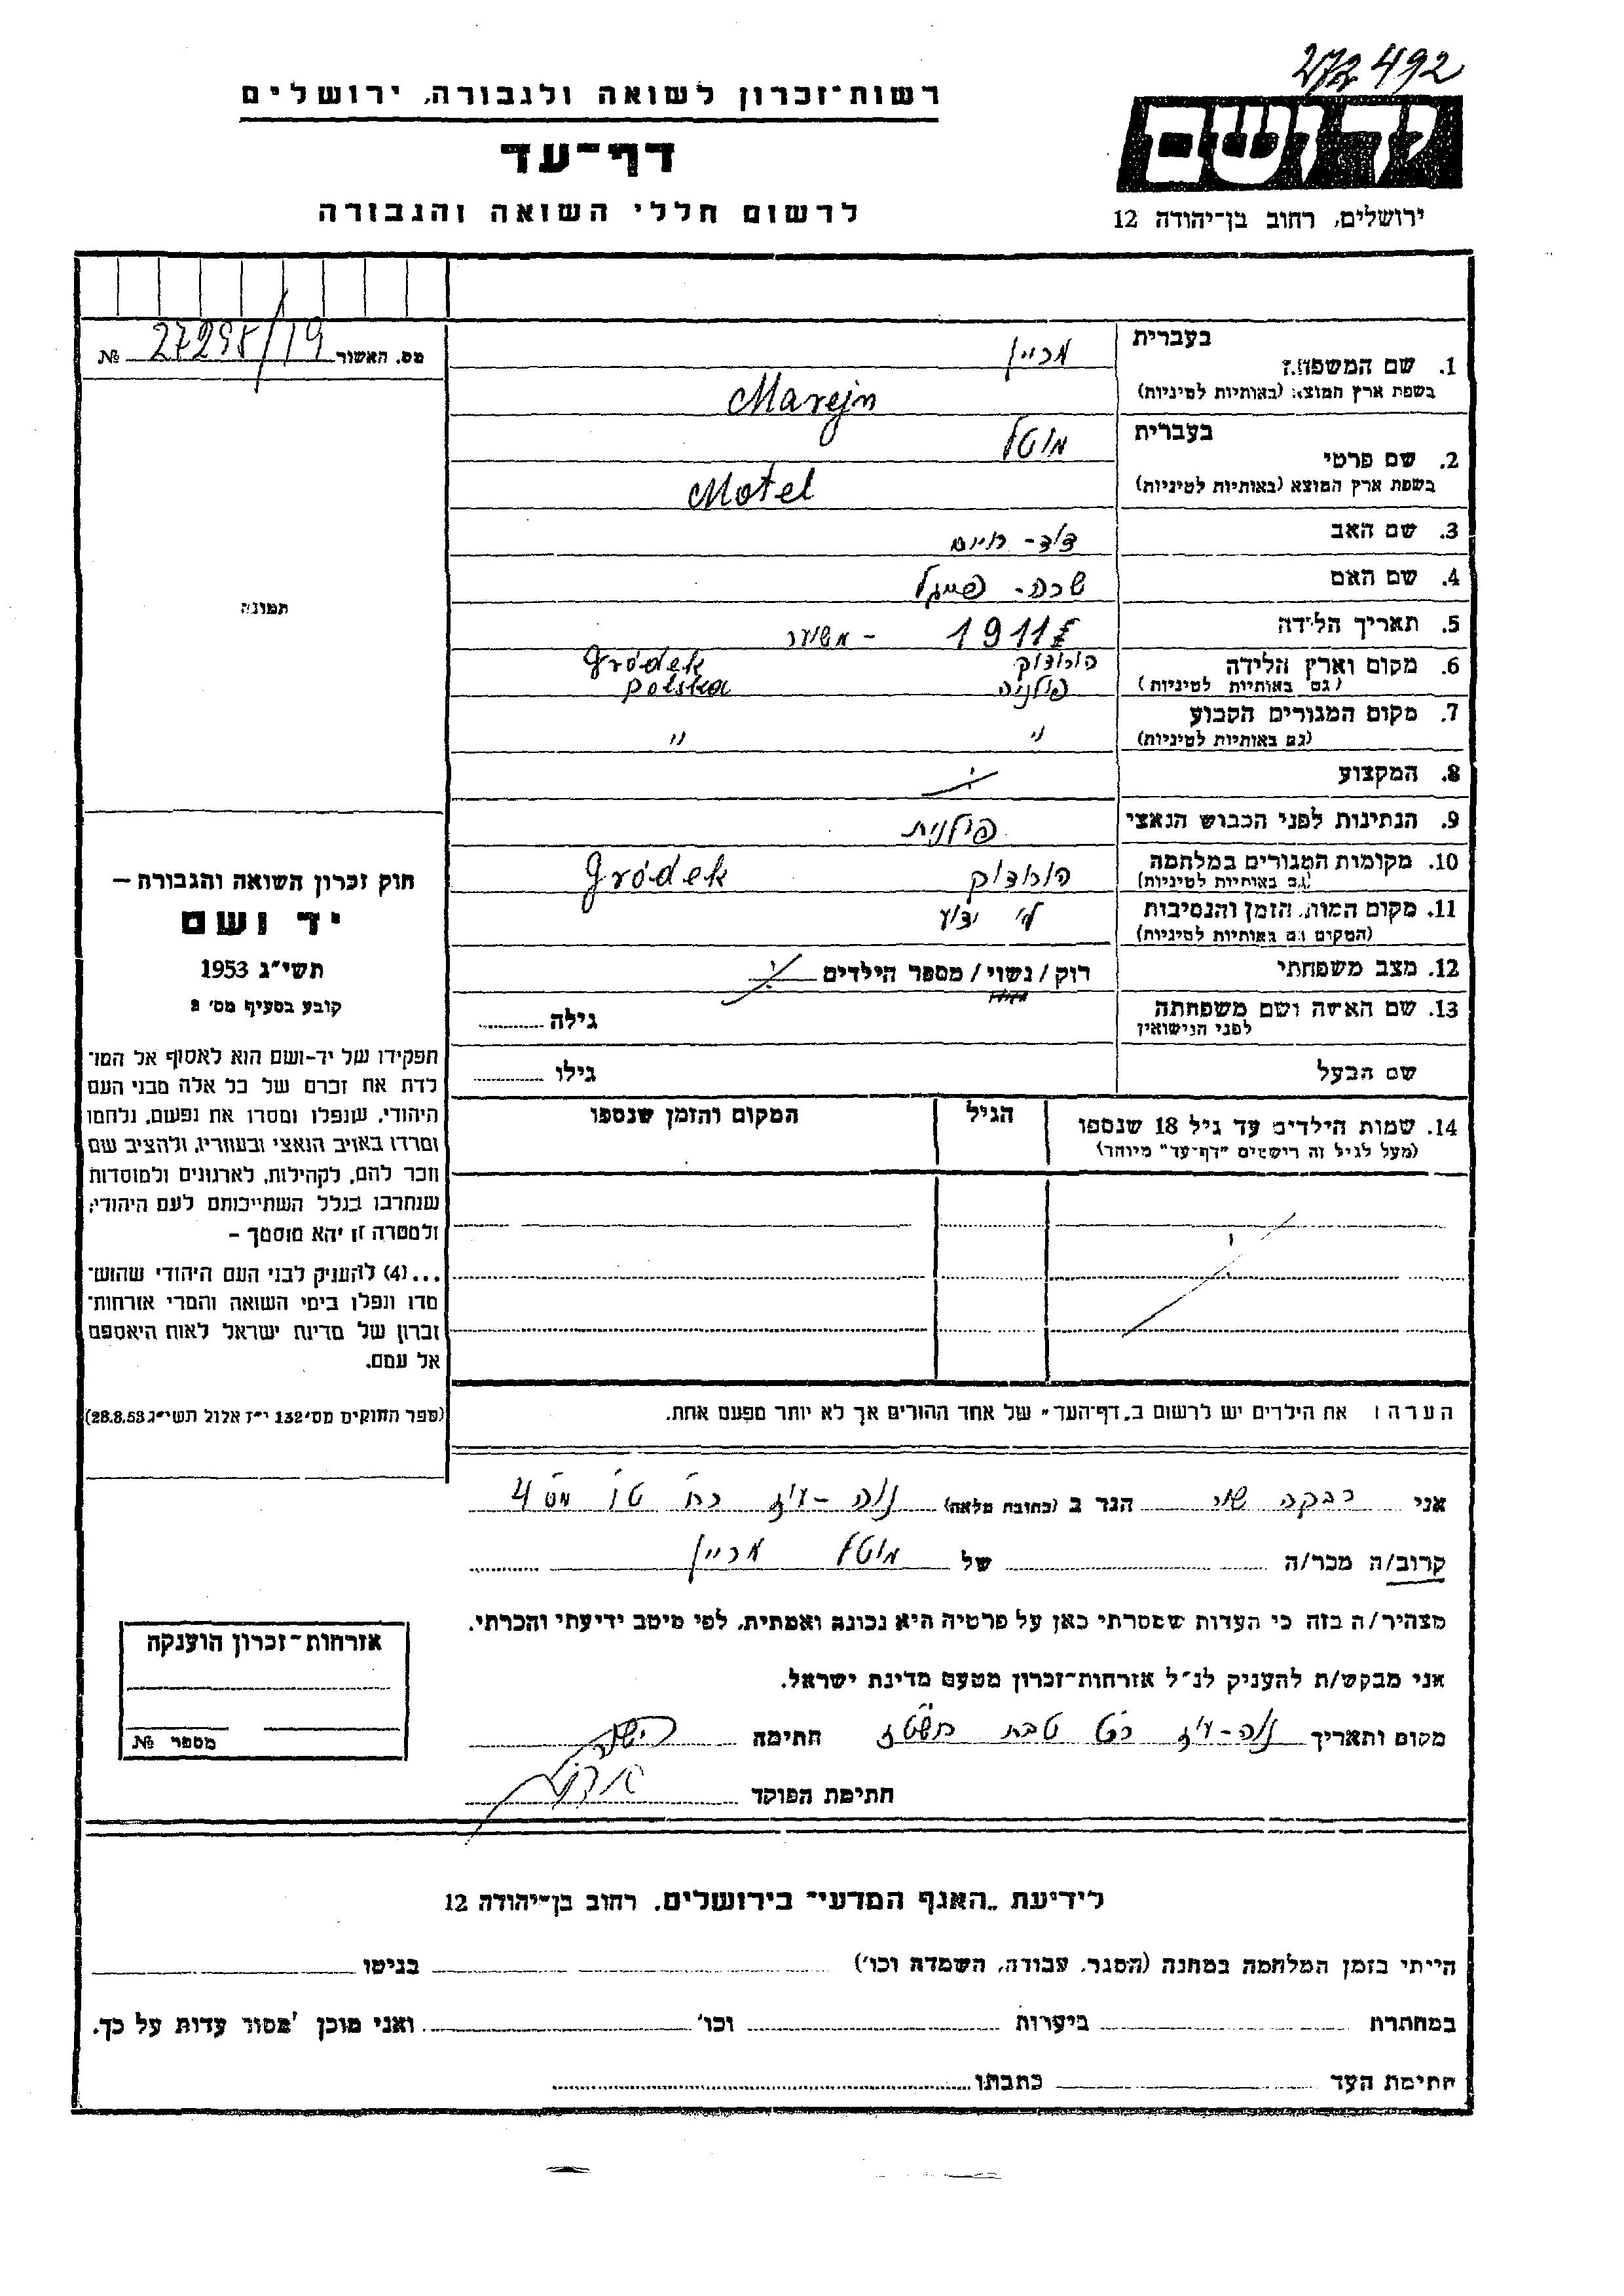 272492
רשות-זכרון לשואה ולגבורה, ירושלים
יד ושם
דף-עד
לרשום חללי השואה והגבורה
ירושלים, רחוב בן-יהודה 12
מס. האשור 27295/19 №
תמונה
חוק זכרון השואה והגבורה —
יד ושם
תשי"ג 1953
קובע בסעיף מס' 2
תפקידו של יד-ושם הוא לאסוף אל המו־
לדת את זכרם של כל אלה מבני העם
היהודי, שנפלו ומסרו את נפשם, נלחמו
ומרדו באויב הנאצי ובעוזריו, ולהציב שם
וזכר להם, לקהילות, לארגונים ולמוסדות
שנחרבו בגלל השתייכותם לעם היהודי;
ולמטרה זו יהא מוסמך —
...(4) להעניק לבני העם היהודי שהוש־
מדו ונפלו בימי השואה והמרי אזרחות־
זכרון של מדינת ישראל לאות היאספם
אל עמם.
(ספר החוקים מס' 132 י"ז אלול תשי"ג 28.8.53)
בעברית מריין
1. שם המשפחה
בשפת ארץ המוצא (באותיות לטיניות) Marejn
בעברית מוטל
2. שם פרטי
בשפת ארץ המוצא (באותיות לטיניות) Motel
3. שם האב דוד - חיים
4. שם האם שרה - פייגל
5. תאריך הלידה 1911 - משוער
6. מקום וארץ הלידה הורודוק Gródek
(גם באותיות לטיניות) פולניה Polska
7. מקום המגורים הקבוע
(גם באותיות לטיניות) " "
8. המקצוע
9. הנתינות לפני הכבוש הנאצי פולנית
10. מקומות המגורים במלחמה הורודוק Gródek
(גם באותיות לטיניות)
11. מקום המות, הזמן והנסיבות לא ידוע
(המקום גם באותיות לטיניות)
12. מצב משפחתי רוק / נשוי / מספר הילדים
13. שם האשה ושם משפחתה גילה
לפני הנישואין
שם הבעל גילו
14. שמות הילדים עד גיל 18 שנספו הגיל המקום והזמן שנספו
(מעל לגיל זה רישמים "דף-עד" מיוחד)
הערה: את הילדים יש לרשום ב"דף-העד" של אחד ההורים אך לא יותר מפעם אחת.
אני רבקה הגר ב (כתובת מלאה) נוה-עוז 4
קרוב/ה מכר/ה של מוטל מריין
מצהיר/ה בזה כי העדות שמסרתי כאן על פרטיה היא נכונה ואמתית, לפי מיטב ידיעתי והכרתי.
אני מבקש/ת להעניק לנ"ל אזרחות-זכרון מטעם מדינת ישראל.
מקום ותאריך נוה-עוז טבת חתימה
חתימת הפוקד
אזרחות-זכרון הוענקה
מספר №
לידיעת "האגף המדעי" בירושלים, רחוב בן-יהודה 12
הייתי בזמן המלחמה במחנה (הסגר, עבודה, השמדה וכו') בגיטו
במחתרת ביערות וכו' ואני מוכן למסור עדות על כך.
חתימת העד כתבתו